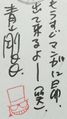 もうすぐマンガに
出て来るよー(笑)
青山剛昌